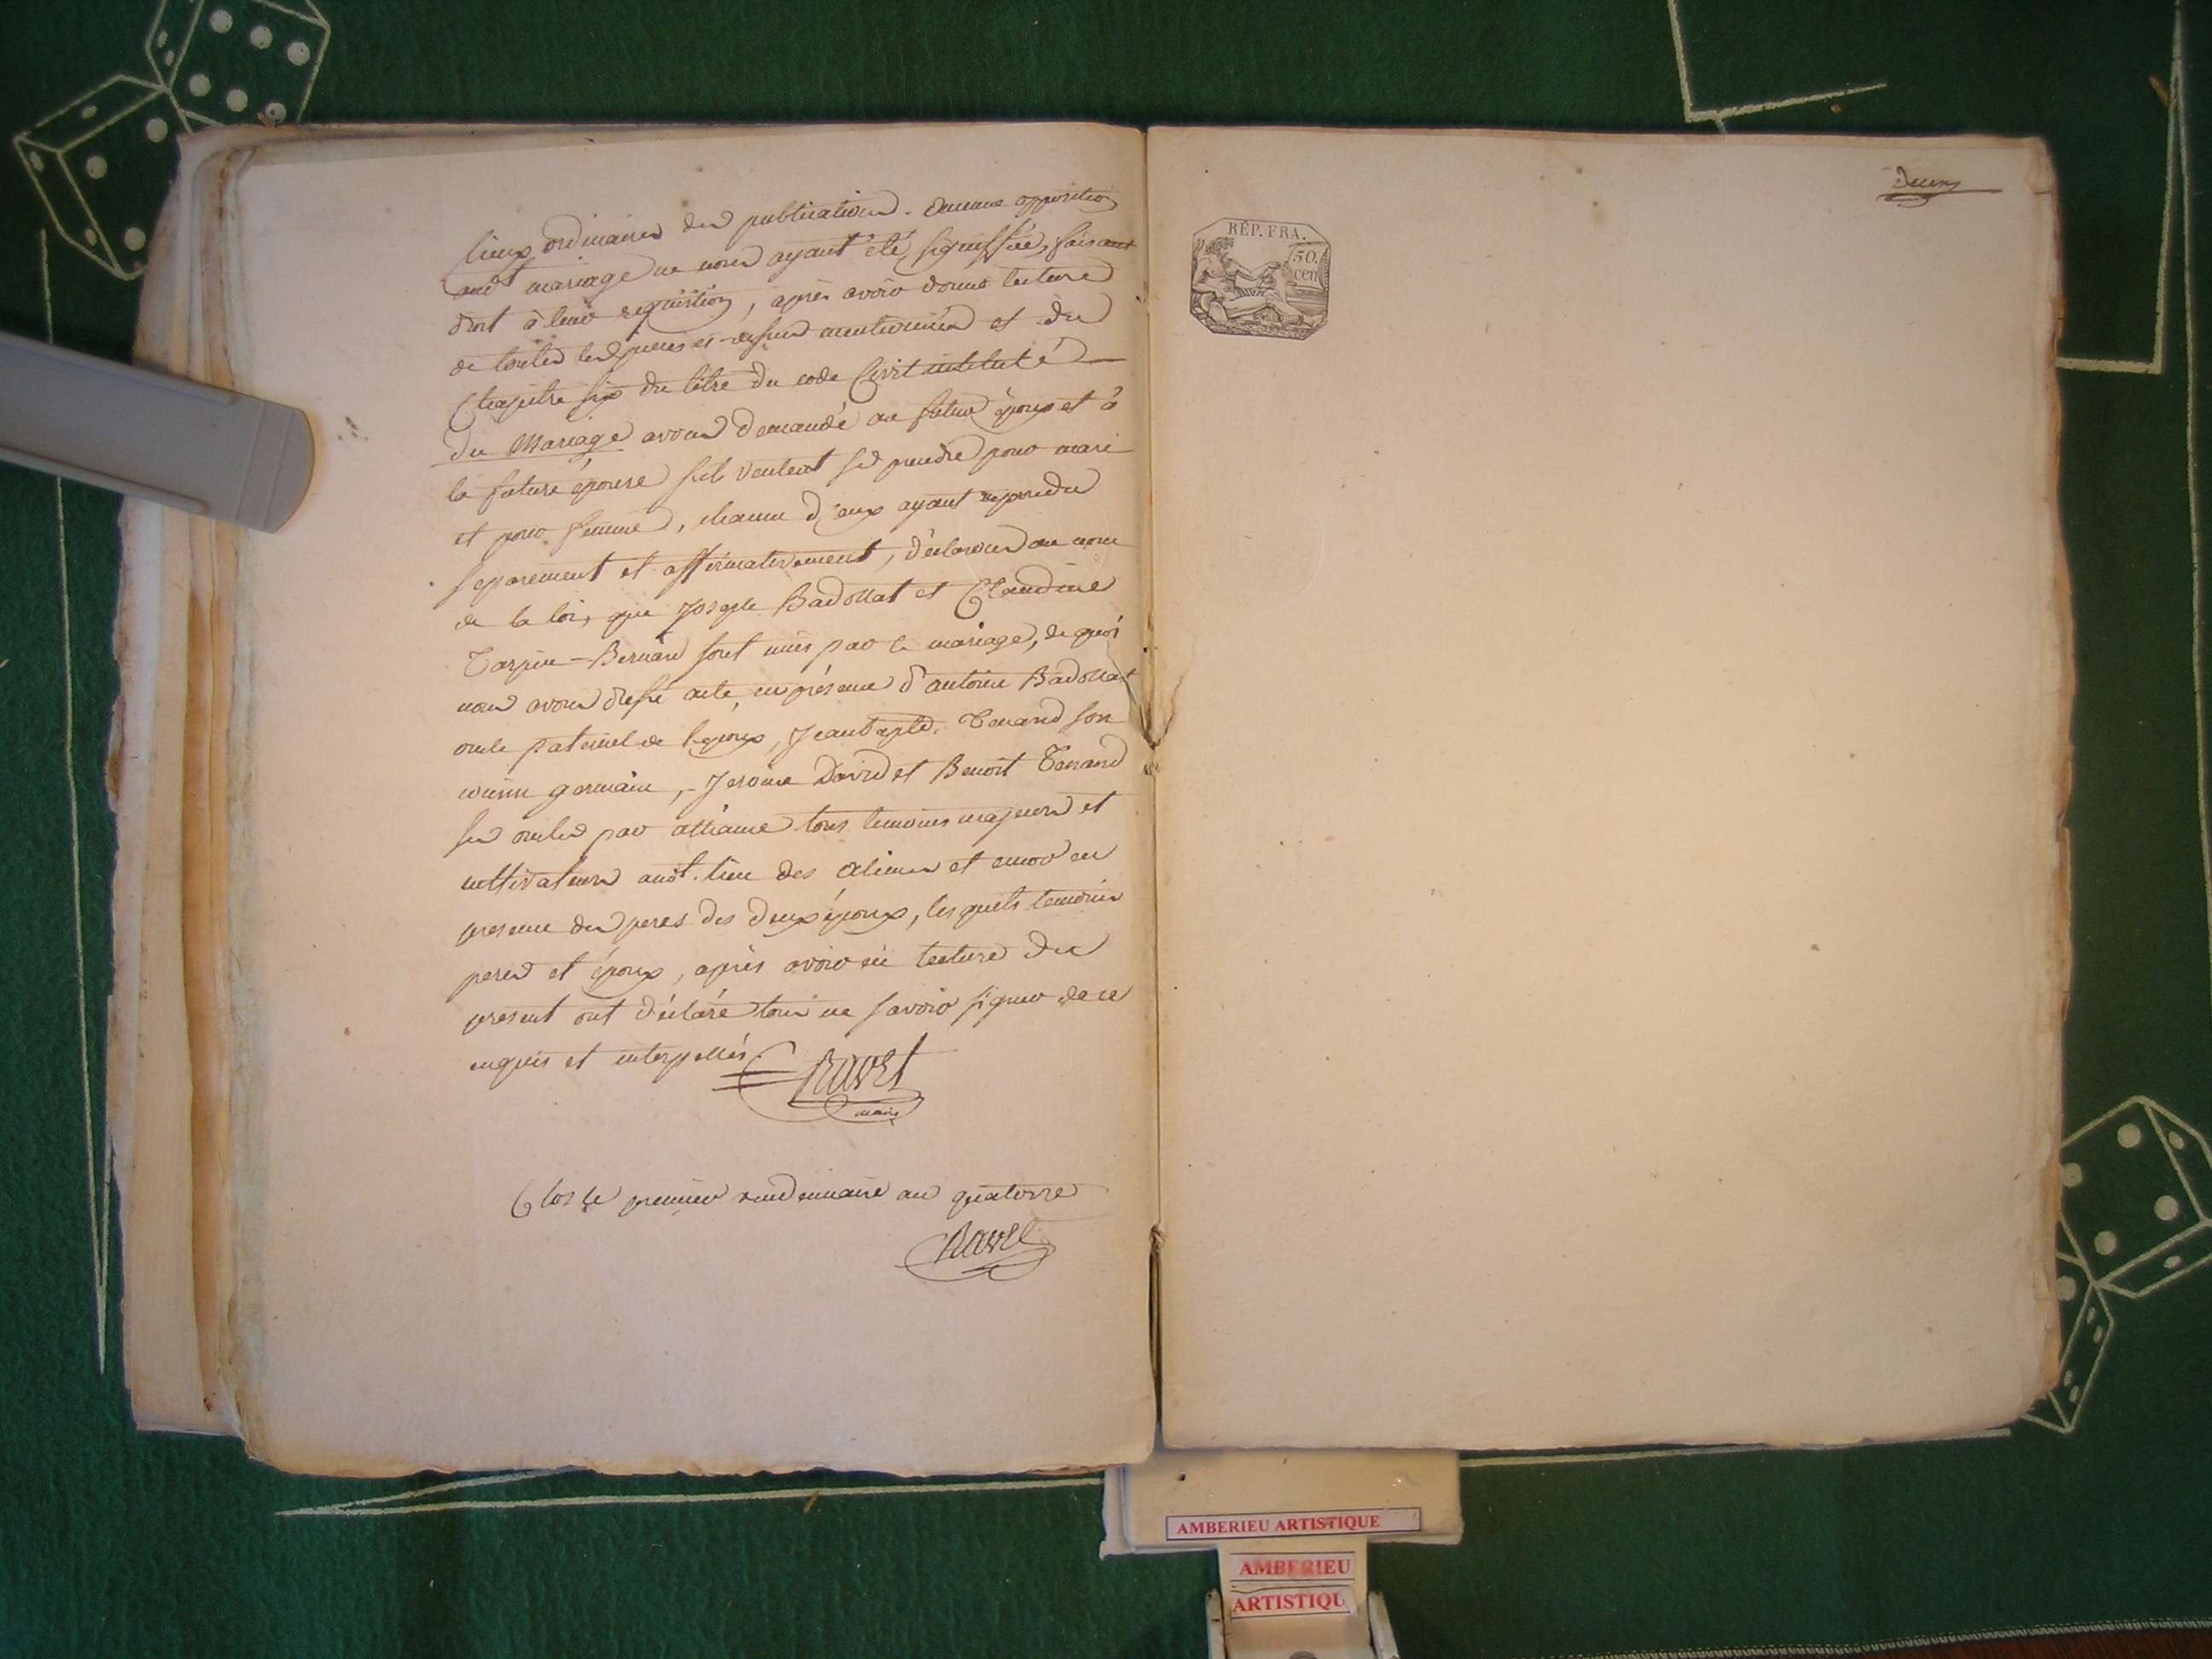 lieux ordinaires des publications. Aucune opposition
audt mariage ne nous ayant été signiffiée, faisant
droit à leur requisition, après avoir donné lecture
de toutes les pieces ci-dessus mentionnées et du
Chapitre six du titre du code Civil intitulé
du Mariage avons demandé au futur époux et à
la future épouse s'ils veulent se prendre pour mari
et pour femme, chacun d'eux ayant repondu
separement et affirmativement, déclarons au nom
de la loi, que Joseph Badollat et Claudine
Tarpin-Bernard sont unis par le mariage, de quoi
nous avons dressé acte, en présence d'antoine Badollat
oncle paternel de l'epoux, Jeanbapte. Tenand son
cousin germain, - Jerome David et Benoit Tenand
ses oncles par alliance tous temoins majeurs et
cultivateurs audt. lieu des alimes et encor en
presence des peres des deux époux, lesquels temoins
peres et époux, après avoir oüi lecture du
present ont déclaré tous ne savoir signer de ce
enquis et interpellés
Ravet
maire
Clos le premier vendemiaire an quatorze
Ravet
Deux
RÉP. FRA.
50.
cen
AMBERIEU ARTISTIQUE
AMBERIEU
ARTISTIQU